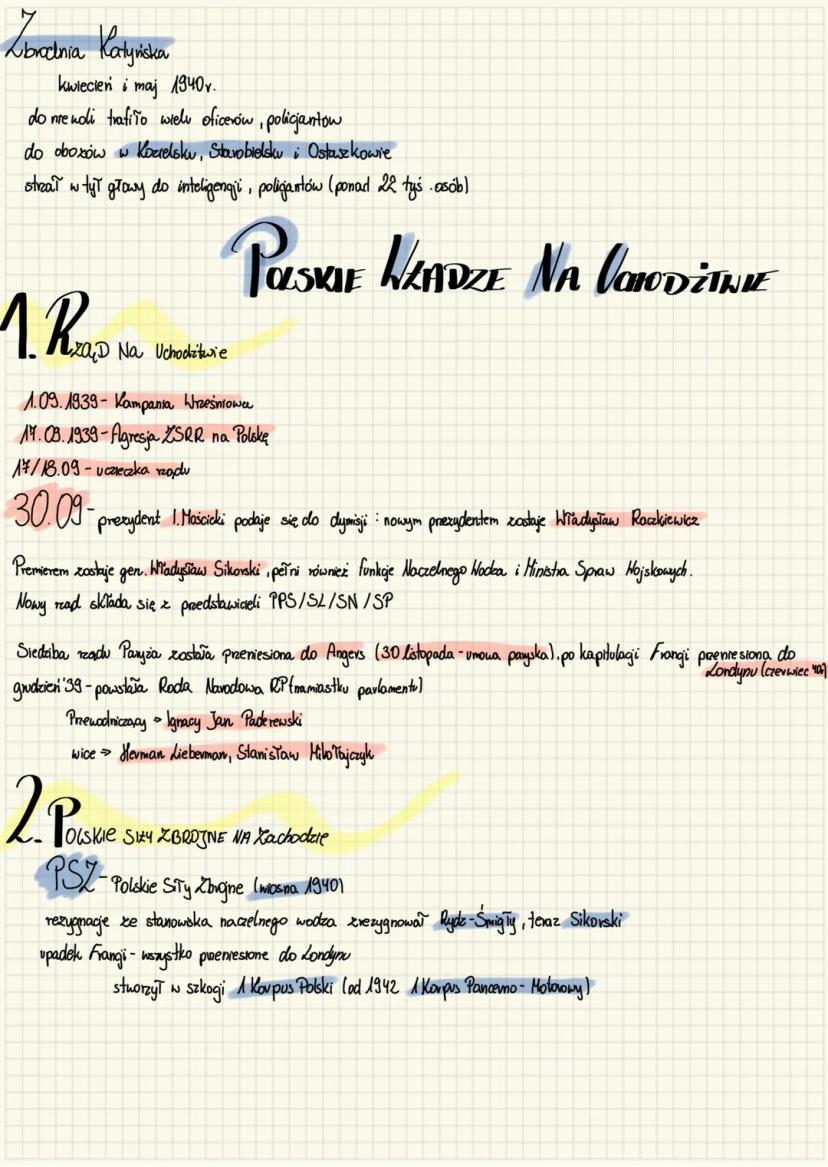 Zbrodnia Katyńska
kwiecień i maj 1940r.
do niewoli trafiło wielu oficerów, policjantów
do obozów w Kozielsku, Starobielsku i Ostaszkowie
strzał w tył głowy do inteligencji, policjantów (ponad 22 tyś. osób)
POLSKIE WŁADZE NA UCHODŹTWIE
1. RZĄD Na Uchodźtwie
1.09.1939 - Kampania Wrześniowa
17.09.1939 - Agresja ZSRR na Polskę
17/18.09 - ucieczka rządu
30.09 - prezydent I.Mościcki podaje się do dymisji : nowym prezydentem zostaje Władysław Raczkiewicz
Premierem zostaje gen. Władysław Sikorski, pełni również funkcje Naczelnego Wodza i Ministra Spraw Wojskowych.
Nowy rząd składa się z przedstawicieli PPS/SL/SN/SP
Siedziba rządu Paryża została przeniesiona do Angers (30 listopada - umowa paryska), po kapitulacji Francji przeniesiona do
Londynu (czerwiec '40r)
grudzień '39 - powstała Rada Narodowa RP (namiastka parlamentu)
Przewodniczący > Ignacy Jan Paderewski
wice => Herman Lieberman, Stanisław Mikołajczyk
2. POLSKIE SIŁY ZBROJNE NA Zachodzie
PSZ - Polskie Siły Zbrojne (wiosna 1940)
rezygnacje ze stanowska naczelnego wodza zrezygnował Rydz-Śmigły, teraz Sikorski
upadek Francji - wszystko przeniesione do Londynu
stworzył w szkocji 1 Korpus Polski (od 1942 1 Korpus Pancerno - Motorowy)